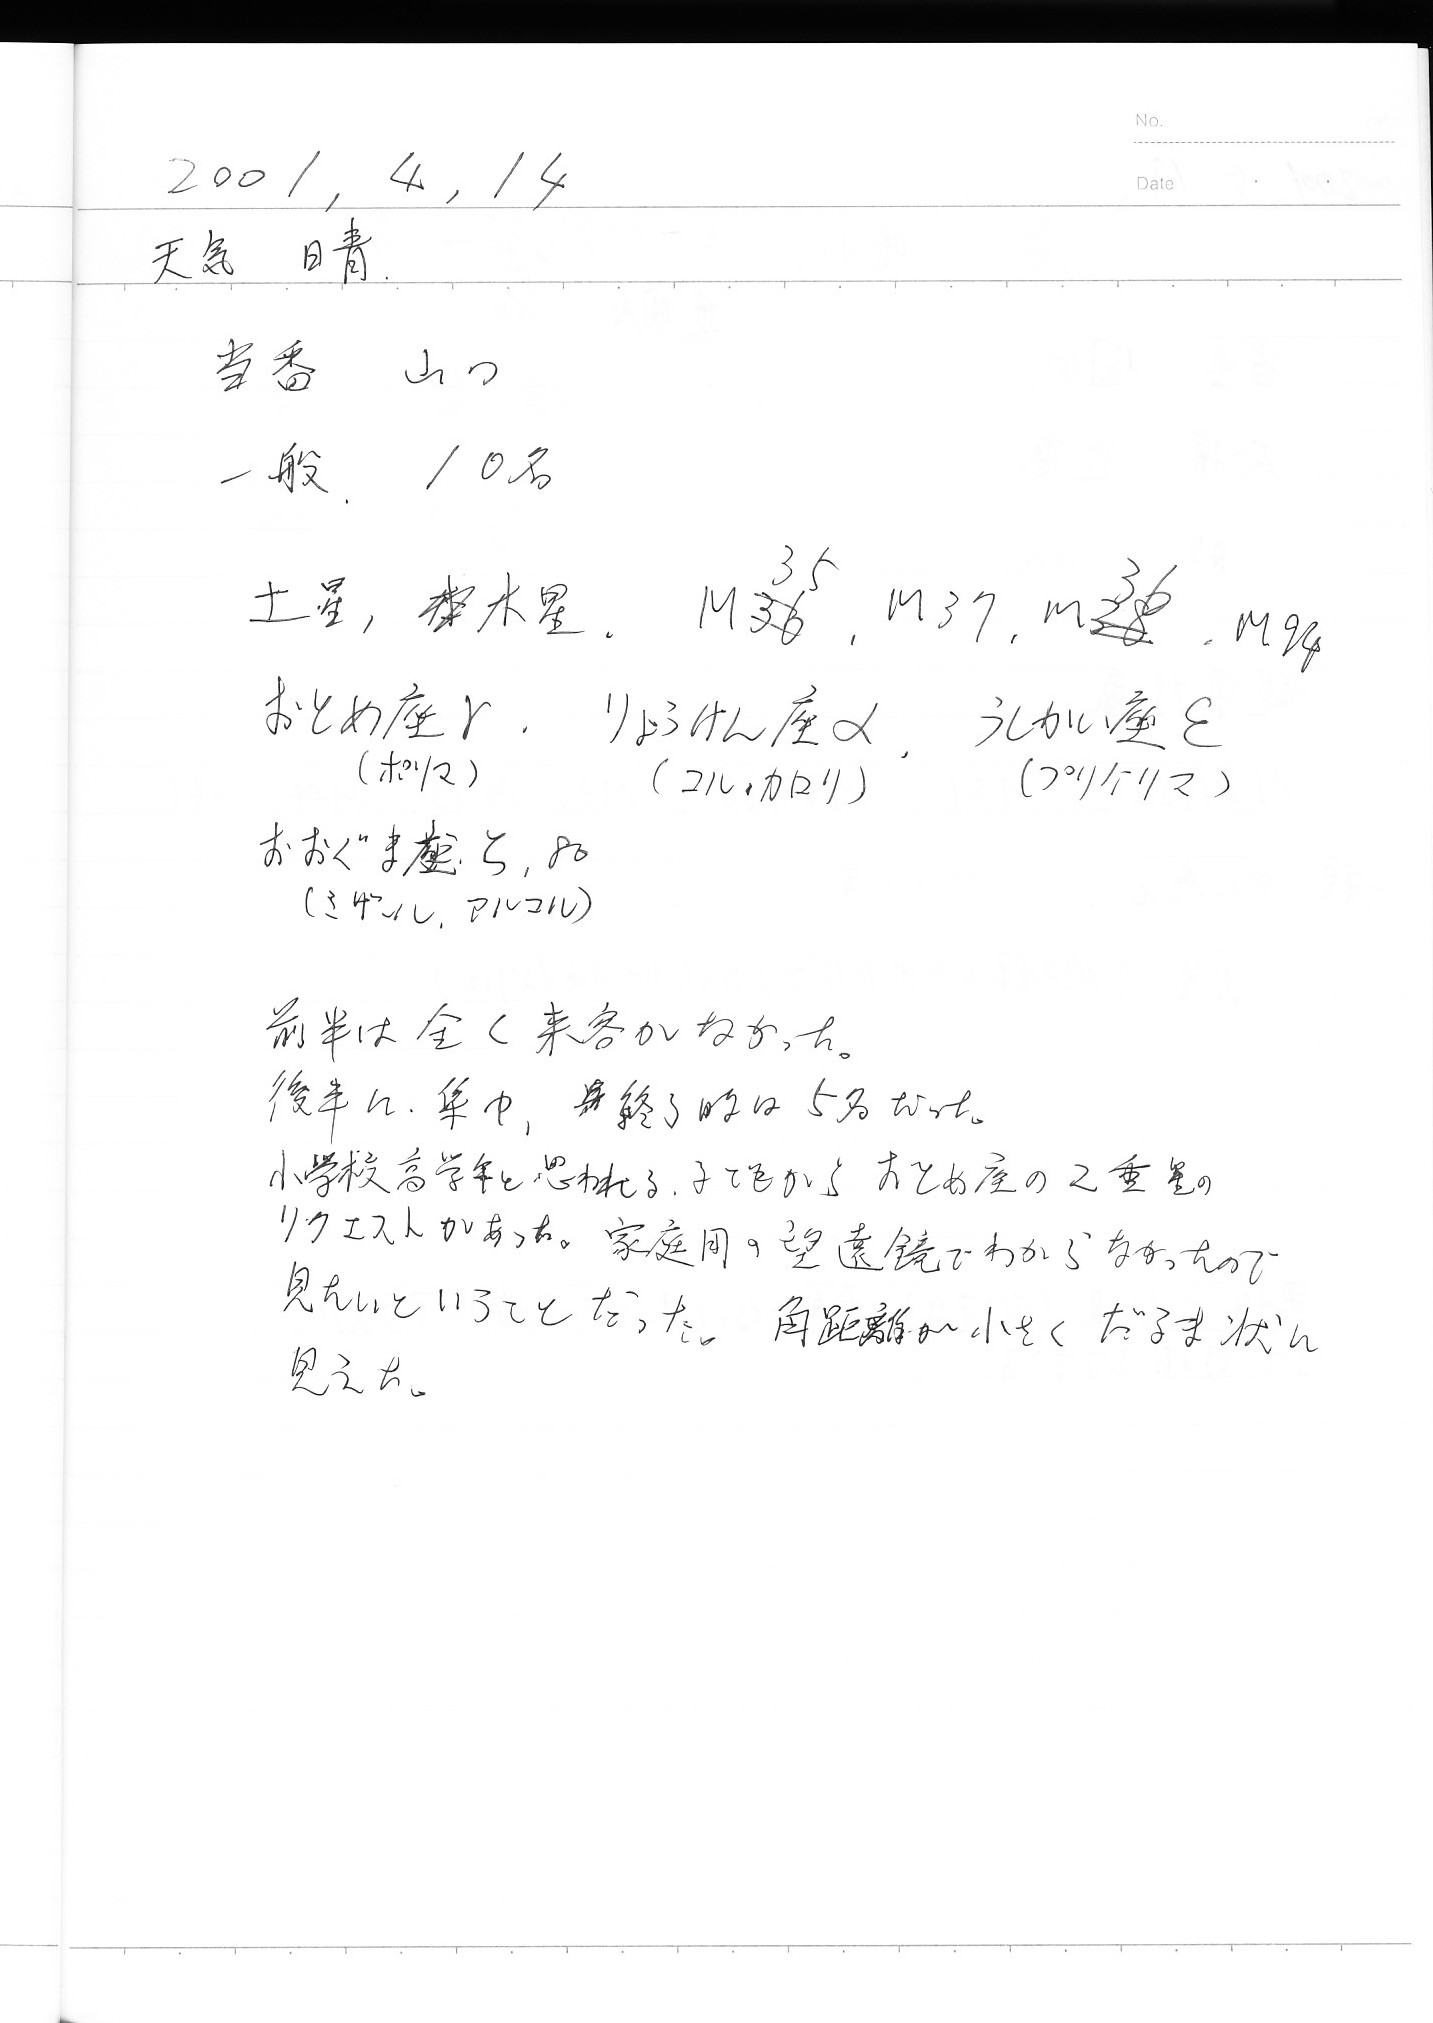 No.
Date
2001, 4, 14
天気 晴.
当番 山口
一般. 10名
土星, 木星. M35, M37, M36, M94
おとめ座γ. りょうけん座α, うしかい座ε
(ポリマ) (コル・カロリ) (プリケリマ)
おおぐま座ζ, 80
(ミザール, アルコル)
前半は全く来客がなかった。
後半に集中, 終了時は5名だった。
小学校高学年と思われる子どもからおとめ座の2重星の
リクエストがあった。家庭用の望遠鏡でわからなかったので
見たいということだった。角距離が小さくだるま状に
見えた。